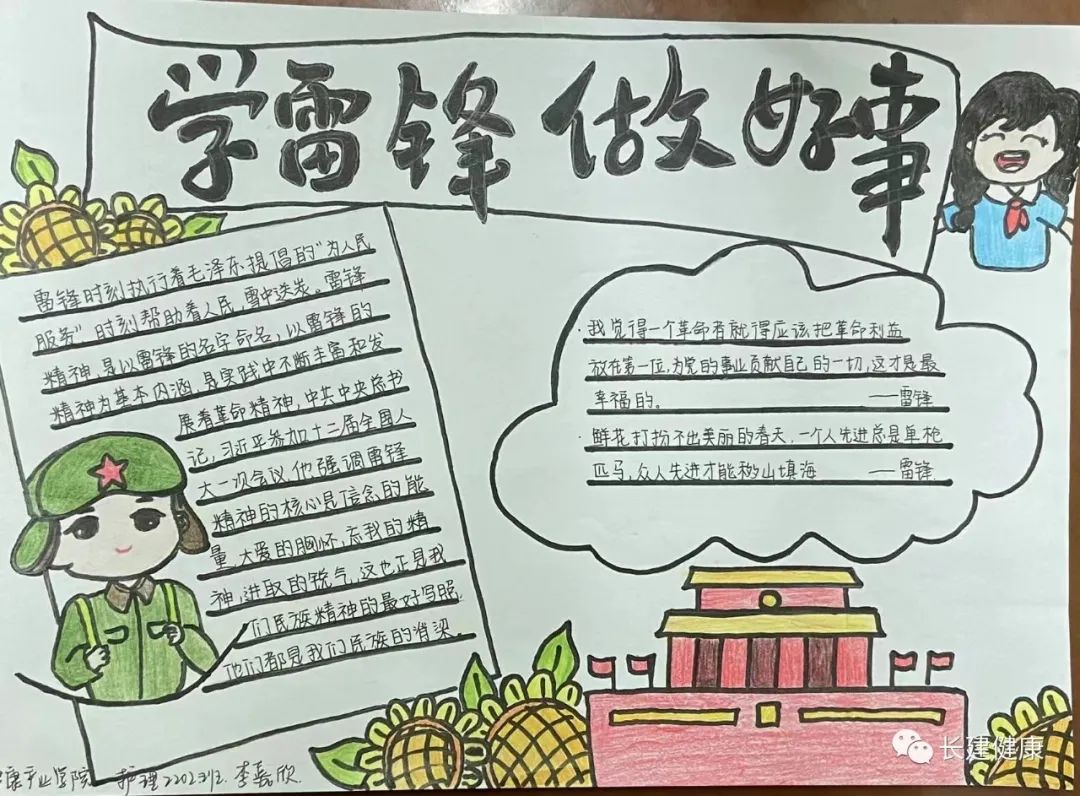 学雷锋做好事
雷锋时刻执行着毛泽东提倡的"为人民
服务"时刻帮助着人民,雪中送炭。雷锋
精神,是以雷锋的名字命名,以雷锋的
精神为基本内涵,是实践中不断丰富和发
展着革命精神,中共中央总书
记,习近平参加十二届全国人
大一次会议,他强调雷锋
精神的核心是信念的能
量,大爱的胸怀,忘我的精
神,进取的锐气,这也正是我
们民族精神的最好写照
他们都是我们民族的脊梁。
·我觉得一个革命者就得应该把革命利益
放在第一位,为党的事业贡献自己的一切,这才是最
幸福的。 ——雷锋
·鲜花打扮不出美丽的春天,一个人先进总是单枪
匹马,众人先进才能移山填海 ——雷锋
康产业学院 护理2202班 李嘉欣
长建健康